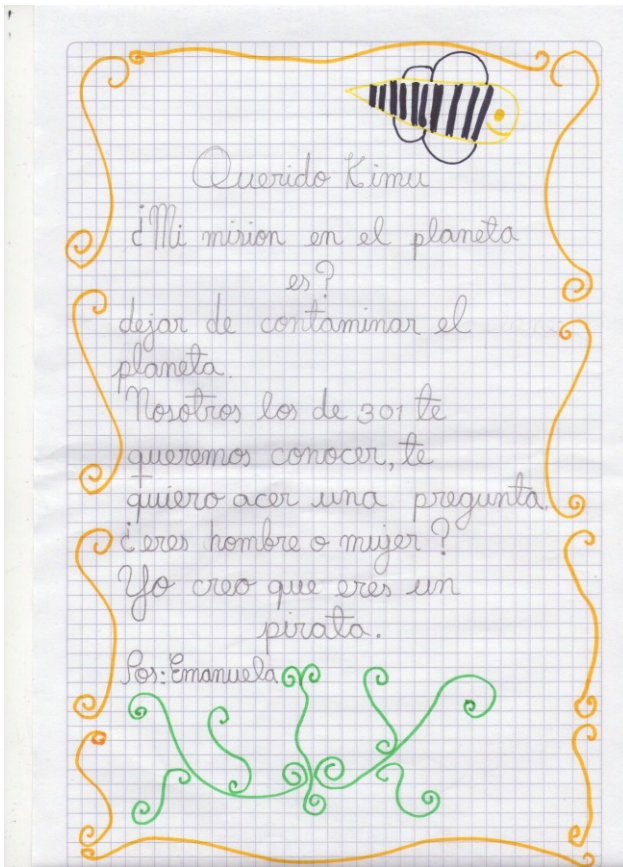 Querido Kimu
¿Mi mision en el planeta
es?
dejar de contaminar el
planeta.
Nosotros los de 301 te
queremos conocer, te
quiero acer una pregunta.
¿eres hombre o mujer?
Yo creo que eres un
pirata.
Por: Emanuela